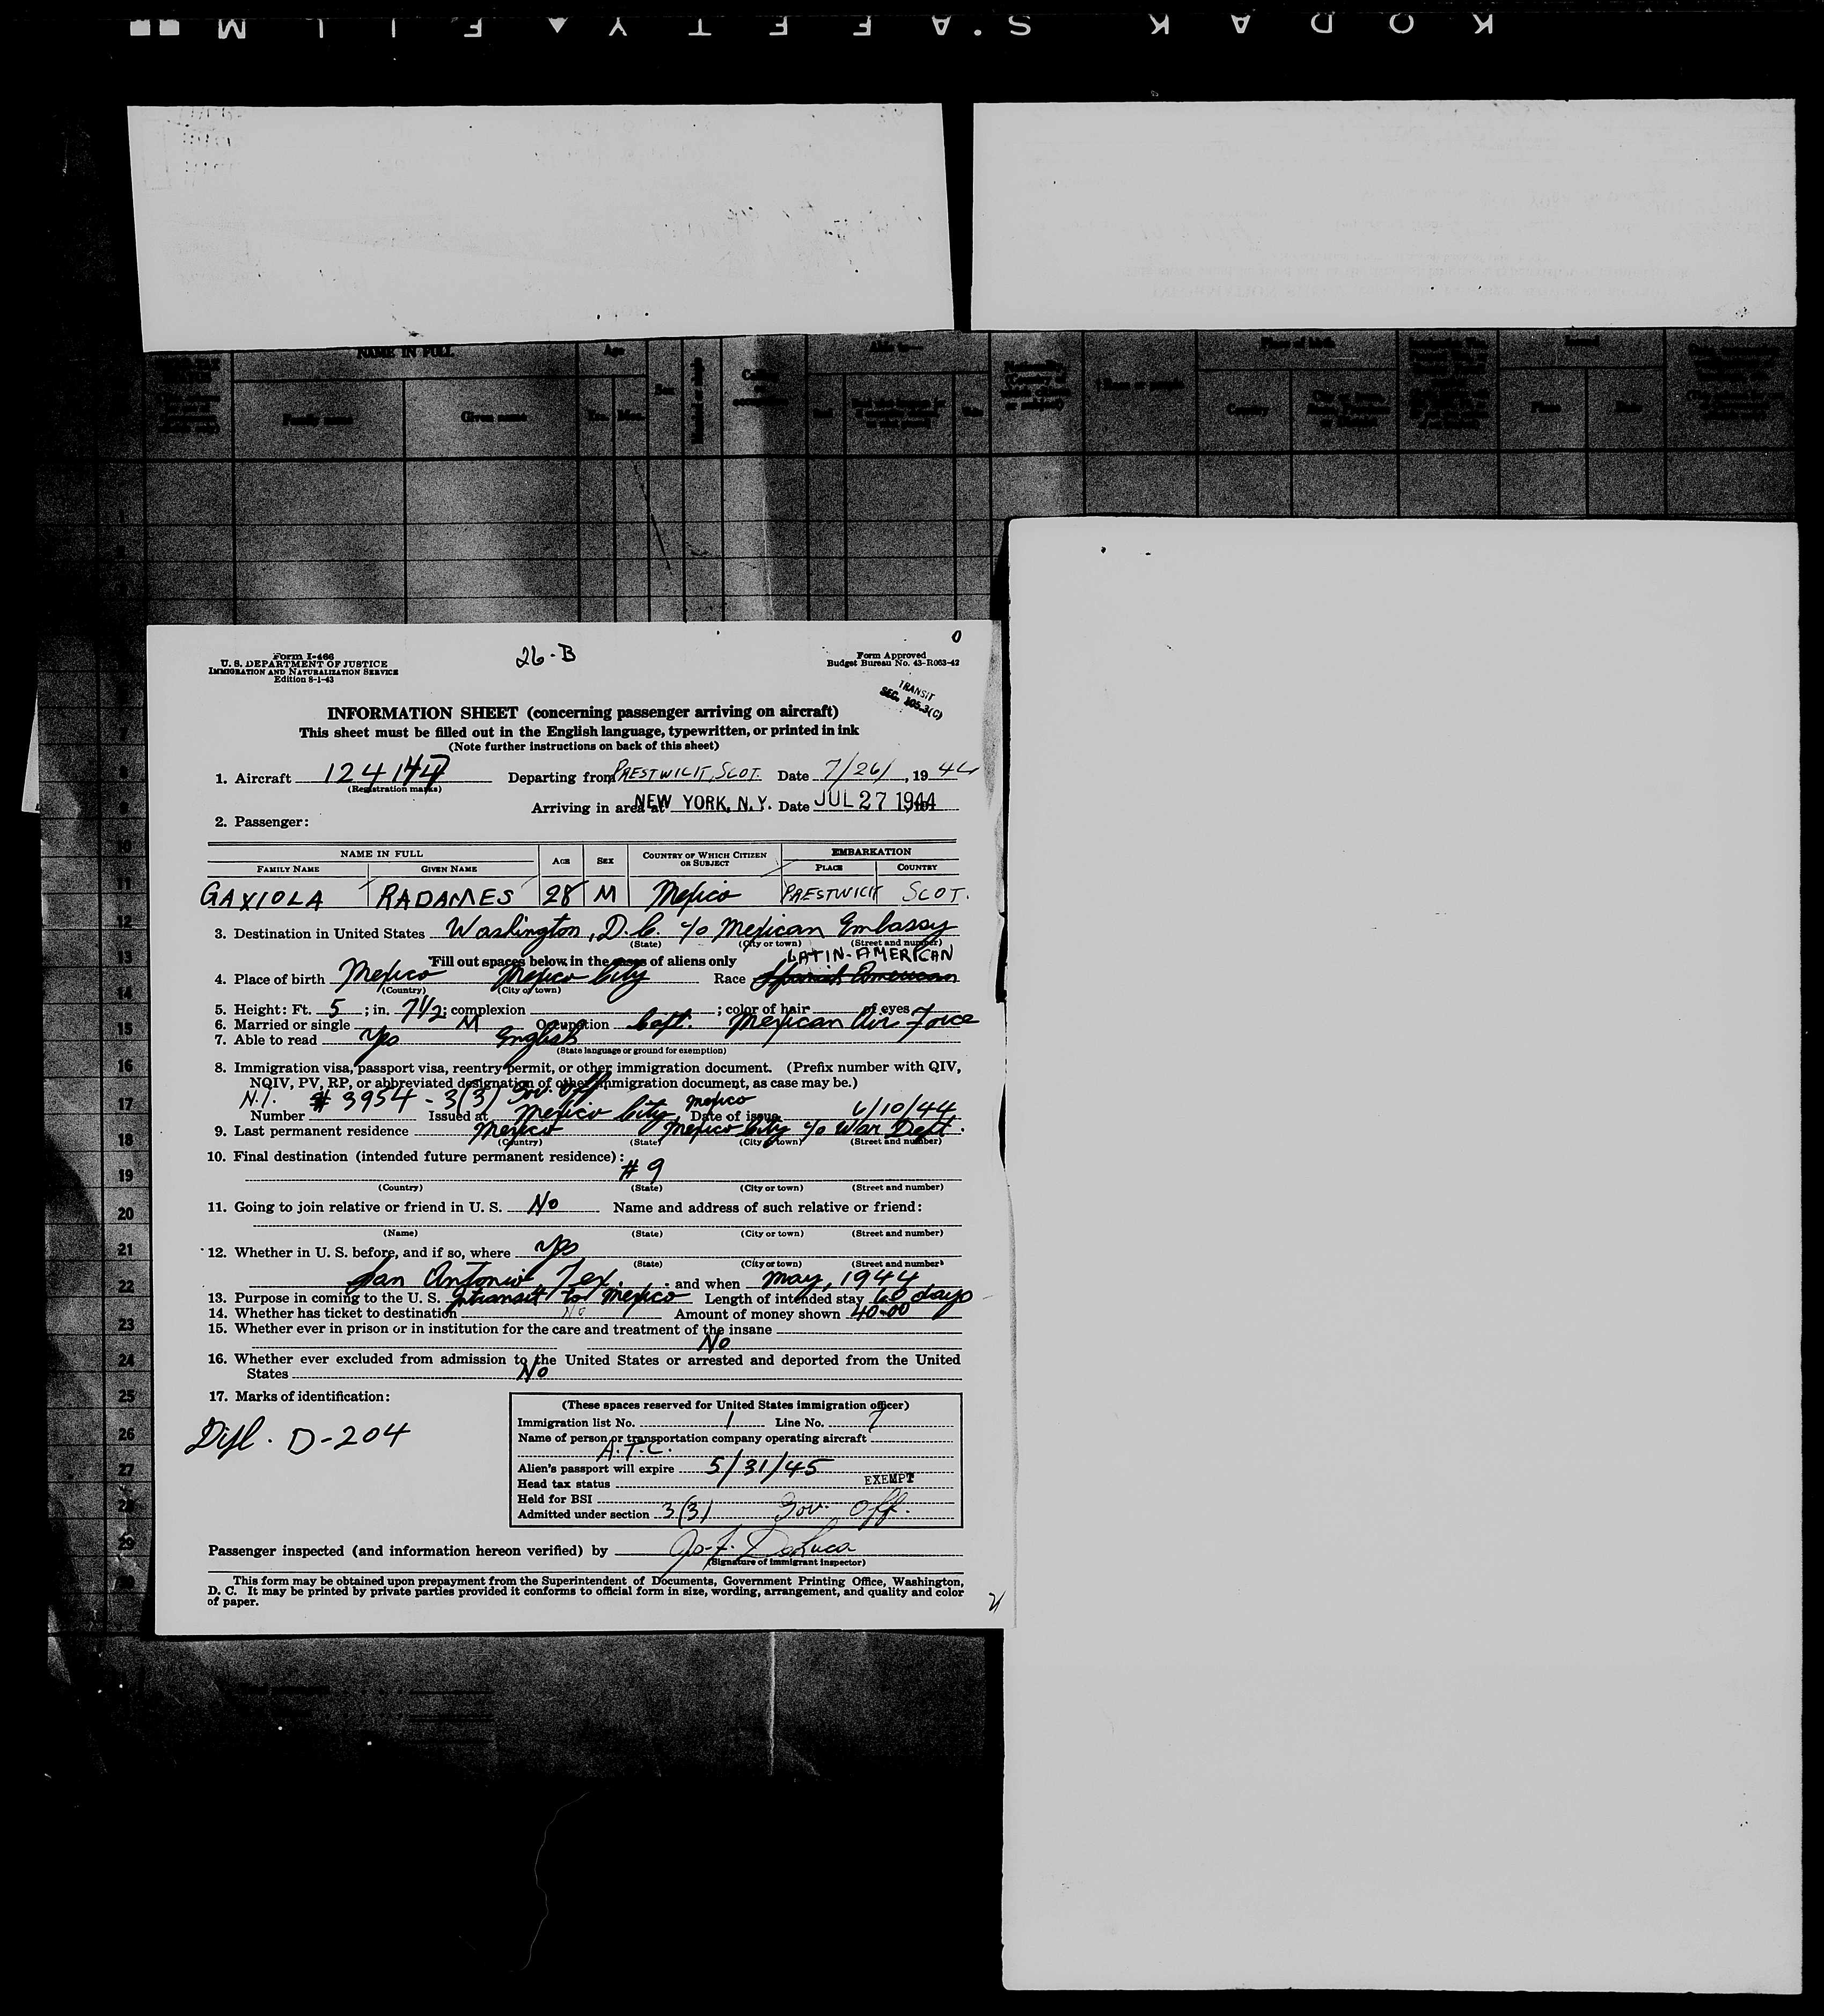 KODAK SAFETY FILM
NAME IN FULL
Age
Able to—
Place of birth
Issued
Family name
Given name
Yrs.
Mos.
Sex
Married or single
Calling or occupation
Read
† Race or people
Country
Place
Date
Form I-466
U. S. DEPARTMENT OF JUSTICE
IMMIGRATION AND NATURALIZATION SERVICE
Edition 8-1-43
26-B
Form Approved
Budget Bureau No. 43-R063-42
TRANSIT
SEC. 105.3(C)
INFORMATION SHEET (concerning passenger arriving on aircraft)
This sheet must be filled out in the English language, typewritten, or printed in ink
(Note further instructions on back of this sheet)
1. Aircraft 124147 Departing from PRESTWICK, SCOT. Date 7/26/, 1944
(Registration marks)
Arriving in area at NEW YORK, N.Y. Date JUL 27 1944
2. Passenger:
NAME IN FULL
AGE
SEX
COUNTRY OF WHICH CITIZEN OR SUBJECT
EMBARKATION
FAMILY NAME
GIVEN NAME
PLACE
COUNTRY
GAXIOLA RADAMES 28 M Mexico PRESTWICK SCOT.
3. Destination in United States Washington, D.C. c/o Mexican Embassy
(State) (City or town) (Street and number)
Fill out spaces below in the cases of aliens only
LATIN-AMERICAN
4. Place of birth Mexico Mexico City Race Spanish American
(Country) (City or town)
5. Height: Ft. 5; in. 7½; complexion ; color of hair of eyes
6. Married or single M Occupation Capt. Mexican Air Force
7. Able to read Yes English
(State language or ground for exemption)
8. Immigration visa, passport visa, reentry permit, or other immigration document. (Prefix number with QIV,
NQIV, PV, RP, or abbreviated designation of other immigration document, as case may be.)
N.I. # 3954 - 3(3) Gov. Off
Number Issued at Mexico City, Mexico Date of issue 6/10/44
9. Last permanent residence Mexico Mexico City c/o War Dept.
(Country) (State) (City or town) (Street and number)
10. Final destination (intended future permanent residence):
#9
(Country) (State) (City or town) (Street and number)
11. Going to join relative or friend in U. S. No Name and address of such relative or friend:
(Name) (State) (City or town) (Street and number)
12. Whether in U. S. before, and if so, where Yes
(State) (City or town) (Street and number)
San Antonio, Tex. and when May, 1944
13. Purpose in coming to the U. S. Intransit to Mexico Length of intended stay 60 days
14. Whether has ticket to destination No Amount of money shown 40.00
15. Whether ever in prison or in institution for the care and treatment of the insane
No
16. Whether ever excluded from admission to the United States or arrested and deported from the United
States No
17. Marks of identification:
Dipl. D-204
(These spaces reserved for United States immigration officer)
Immigration list No. 1 Line No. 7
Name of person or transportation company operating aircraft
A.T.C.
Alien's passport will expire 5/31/45
Head tax status EXEMPT
Held for BSI
Admitted under section 3(3) Gov. Off.
Passenger inspected (and information hereon verified) by Jo. F. DeLuca
(Signature of immigrant inspector)
This form may be obtained upon prepayment from the Superintendent of Documents, Government Printing Office, Washington,
D. C. It may be printed by private parties provided it conforms to official form in size, wording, arrangement, and quality and color
of paper.